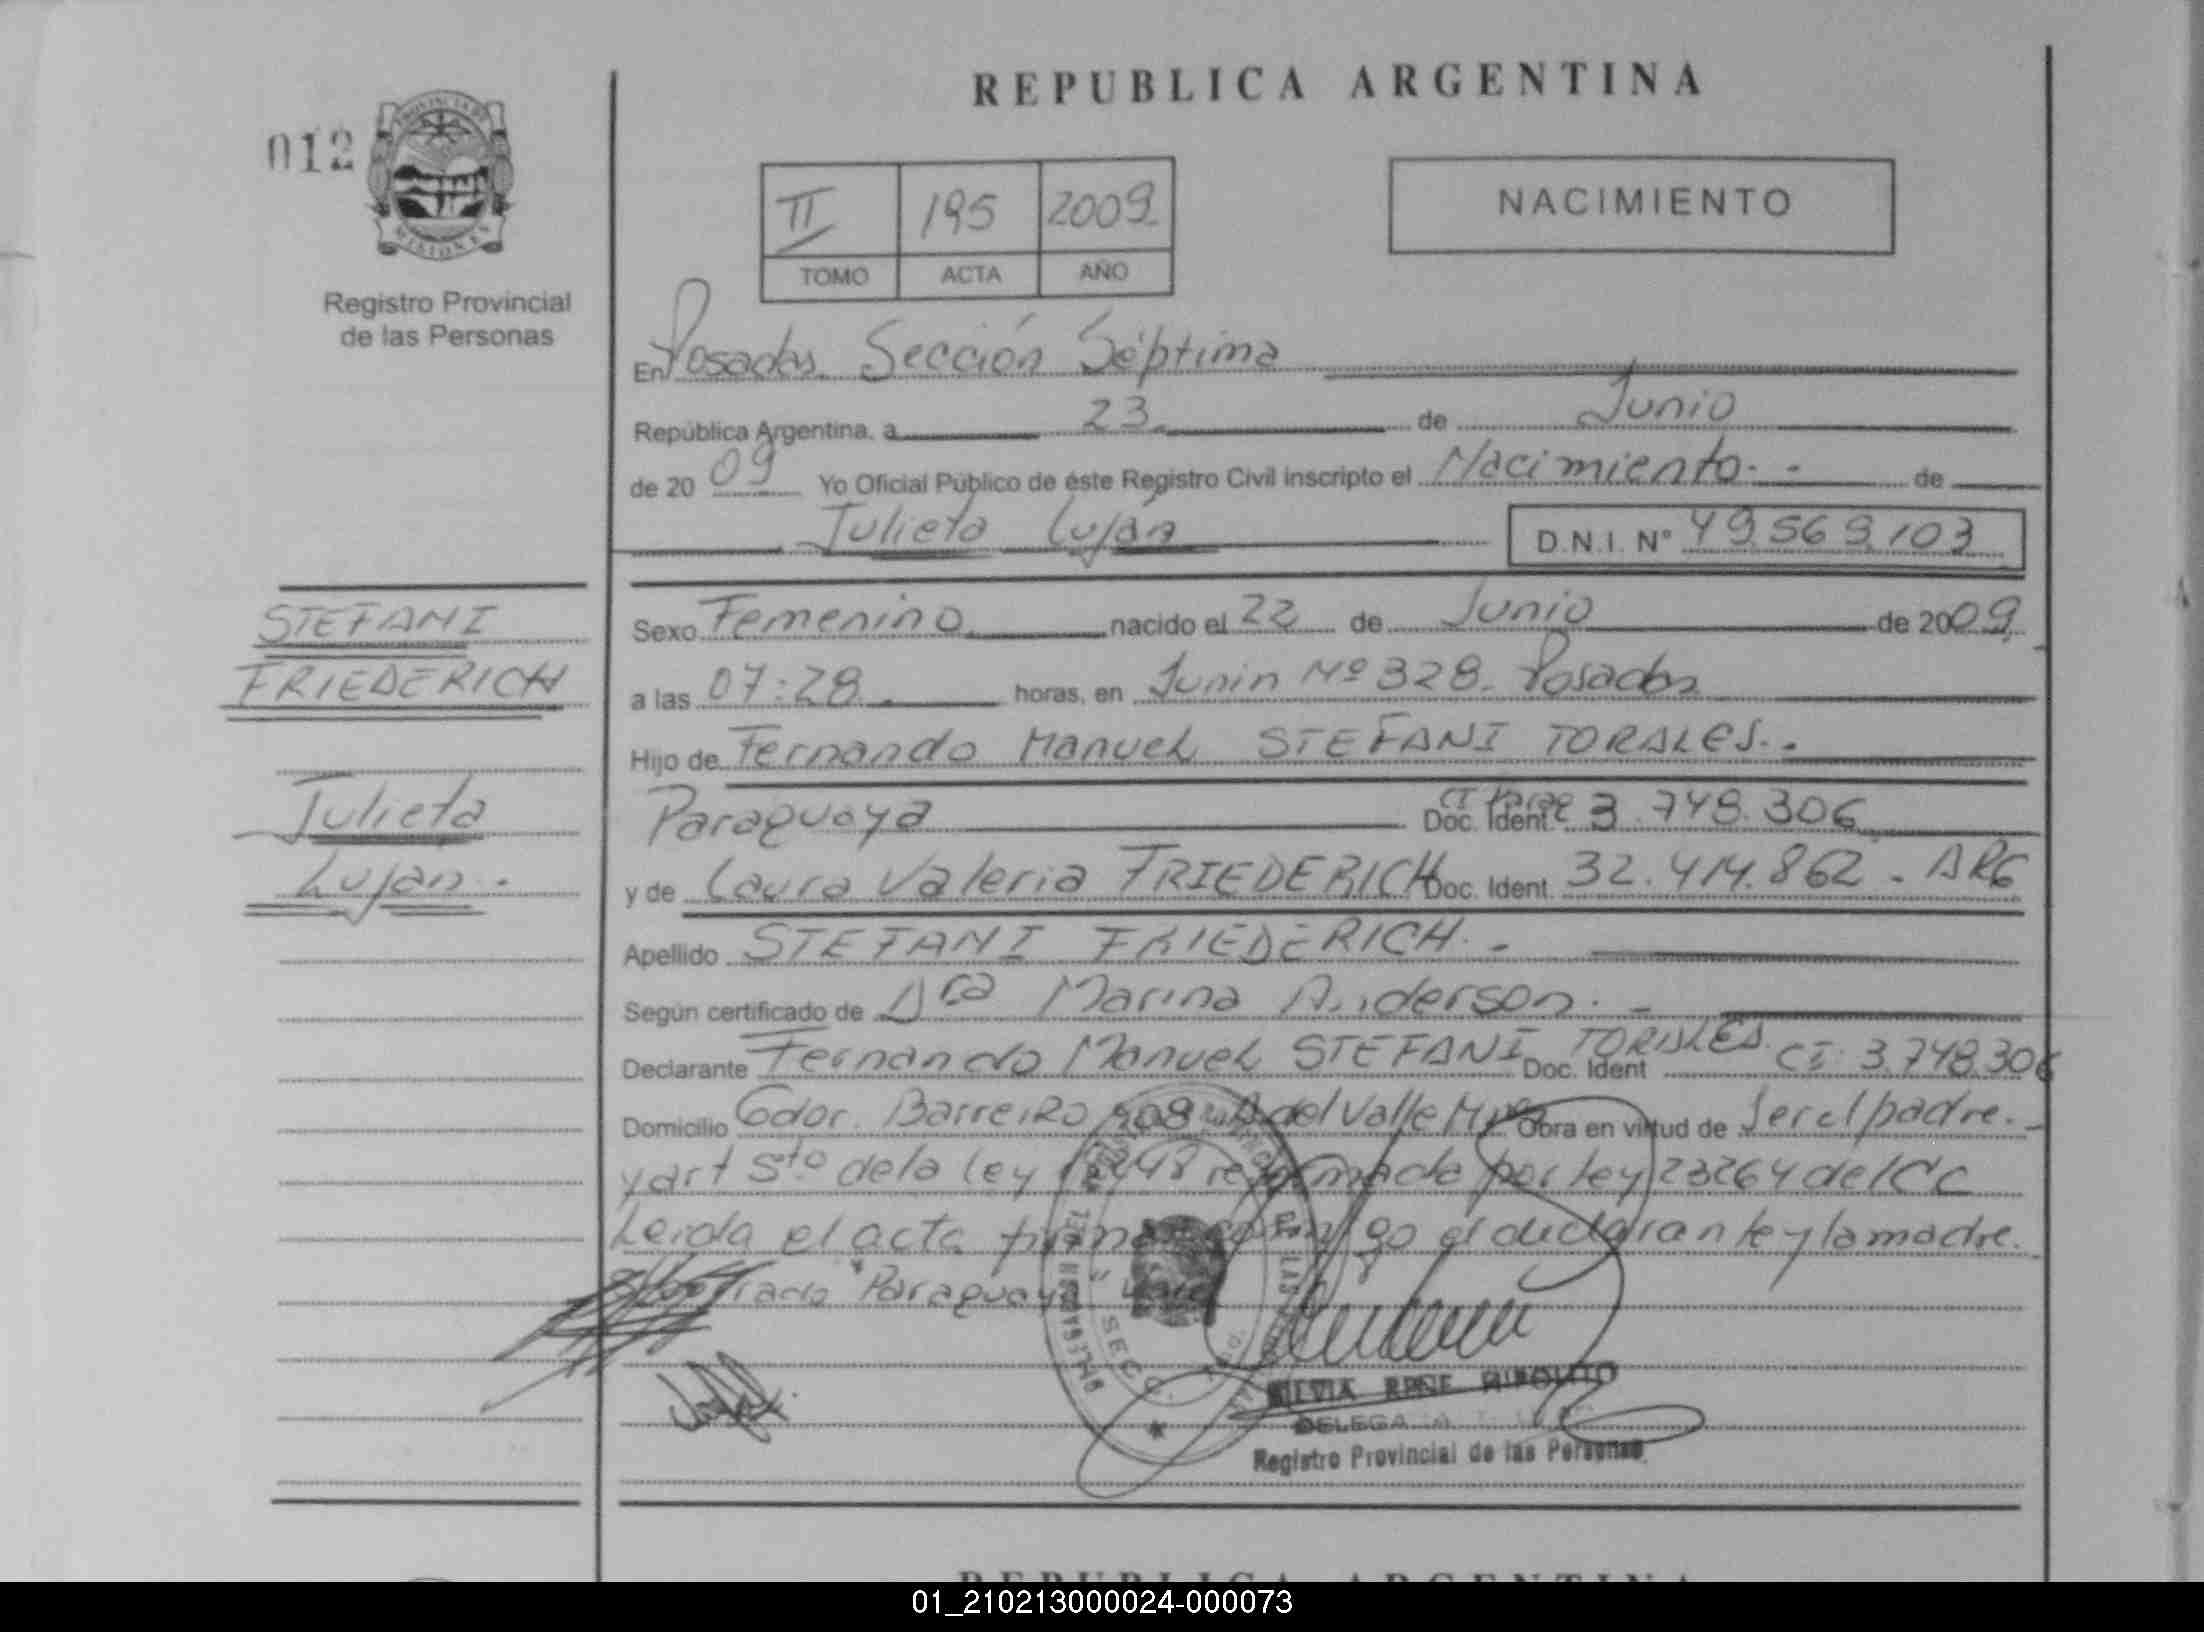 REPUBLICA ARGENTINA
012
PROVINCIA DE
MISIONES
Registro Provincial
de las Personas
II 195 2009
TOMO ACTA AÑO
NACIMIENTO
En Posadas Sección Séptima
República Argentina, a 23 de Junio
de 2009 Yo Oficial Público de éste Registro Civil inscripto el Nacimiento de
Julieta Luján D.N.I. N° 49.569.103
STEFANI
FRIEDERICH
Julieta
Luján
Sexo Femenino nacido el 22 de Junio de 2009
a las 07:28 horas, en Junin Nº 328. Posadas
Hijo de Fernando Manuel STEFANI TORALES
Paraguaya Doc. Ident. CI Parag 3.748.306
y de Laura Valeria FRIEDERICH Doc. Ident. 32.414.862 - ARG
Apellido STEFANI FRIEDERICH
Según certificado de Dra Marina Anderson
Declarante Fernando Manuel STEFANI TORALES Doc. Ident CI: 3.748.306
Domicilio Gdor. Barreiro 908 A del Valle Obra en virtud de ser el padre.
y art 5to de la Ley reformada por ley 23264 del CC
Leida el acta firman conmigo el declarante y la madre.
"Paraguaya" vale
SECC.
SILVIA RENE HIPOLITO
DELEGADA
Registro Provincial de las Personas
REPUBLICA ARGENTINA
01_210213000024-000073